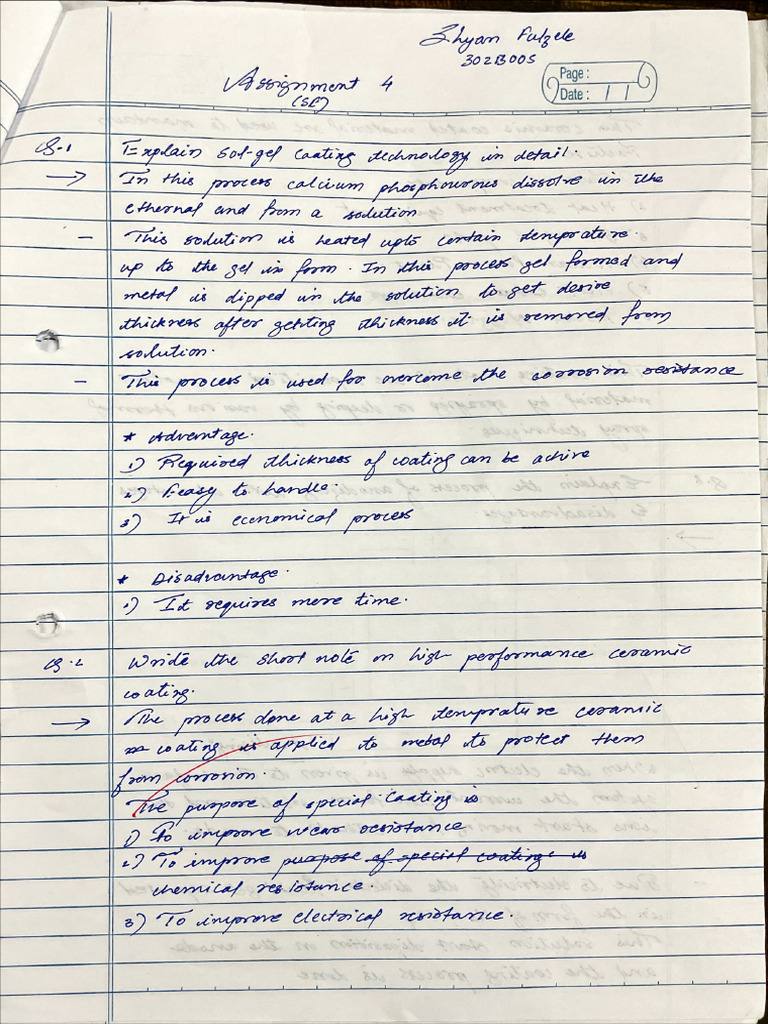 Shyan Fulzele
302B005
Page :
Date : / /
Assignment 4
(SE)
Q.1 Explain Sol-gel coating technology in detail.
→ In this process calcium phosphourous dissolve in the
ethernal and from a solution
- This solution is heated upto certain temprature.
up to the gel in form. In this process gel formed and
metal is dipped in the solution to get desire
thickness after getting thickness it is removed from
solution.
- This process is used for overcome the corrosion resistance
* Advantage.
1) Required thickness of coating can be achive
2) Easy to handle.
3) It is economical process
* Disadvantage.
1) It requires more time.
Q.2 Write the short note on high performance ceramic
coating.
→ The process done at a high temprature ceramic
coating is applied to metal to protect them
from corrosion.
The purpore of special coating is
1) To improve wear resistance
2) To improve purpose of special coating is
chemical resistance.
3) To improve electrical resistance.